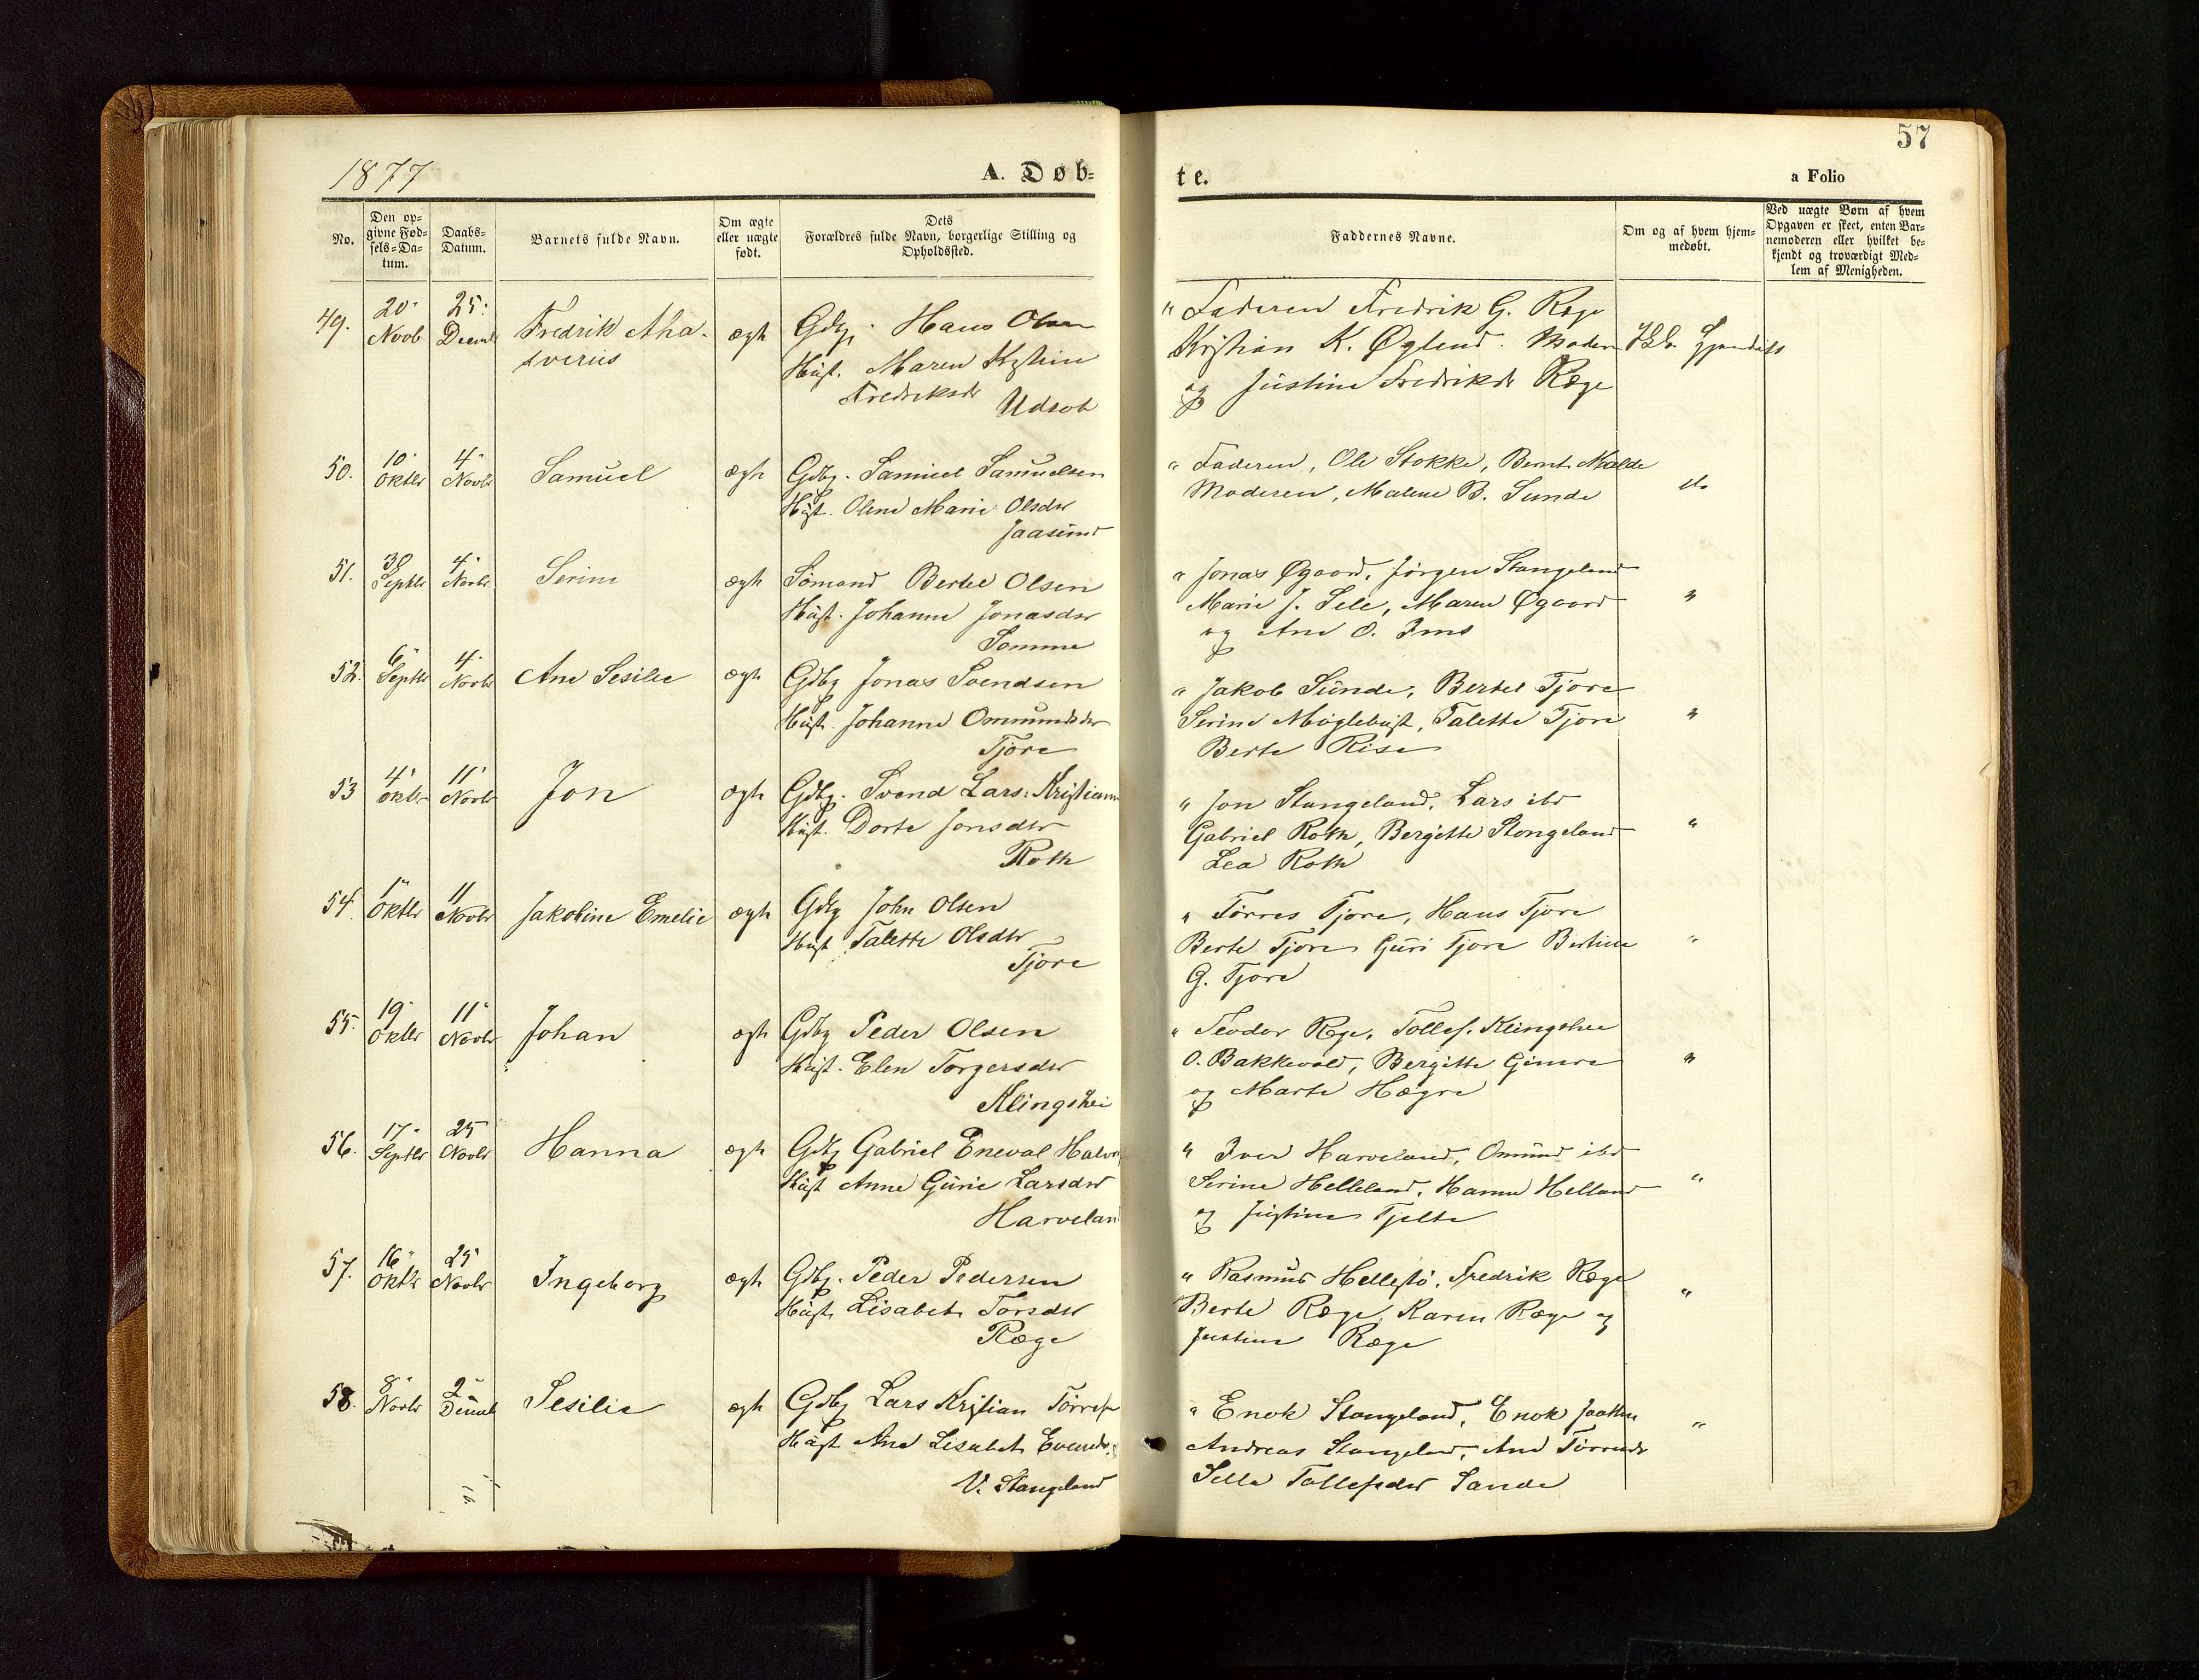 57
1877
A. Døb-
te.
a Folio
No.
Den op-
givne Fød-
sels-Da-
tum.
Daabs-
Datum.
Barnets fulde Navn.
Om ægte
eller uægte
født.
Dets
Forældres fulde Navn, borgerlige Stilling og
Opholdssted.
Faddernes Navne.
Om og af hvem hjem-
medøbt.
Ved uægte Børn af hvem
Opgaven er skeet, enten Bar-
nemoderen eller hvilket be-
kjendt og troværdigt Med-
lem af Menigheden.
49. 20. Novb 25. Decemb Fredrik Aha- ægte Gdbg. Hans Olsen
sverus
Hust. Maren Kristine
Fredriksdr
Udsola
" Faderen Fredrik G. Rege
Kristian K. Øglend. Moder
og Justine Fredriksdr Ræge
50. 10. Oktbr 4. Novbr Samuel ægte Gdbg. Samuel Samuelsen
Hust. Olene Marie Olsdr
Jaasund
" Faderen, Ole Stokke, Bernt Malde
Moderen, Malene B. Sunde
do
51. 30 Septbr 4. Novbr Serine ægte Sømand Bertel Olsen
Hust. Johanne Jonasdr
Somme
" Jonas Øgaard, Jørgen Stangeland
Marie J. Sele, Maren Øgaard "
og Ane O. Ims
52. 6. Septbr 4. Novbr Ane Sesilie ægte Gdbg Jonas Svendsen
Hust. Johanne Ommundsdr
Tjore
" Jakob Sunde, Bertel Tjore
Serine Myglebust, Talette Tjore "
Berte Rise
53 4. Oktbr 11. Novbr Jon ægte Gdbg. Svend Lars Kristian
Hust. Dorte Jonsdtr
Roth
" Jon Stangeland, Lars ibd
Gabriel Roth, Bergitte Stangeland "
Lea Roth
54. 1. Oktbr 11 Novbr Jakobine Emelie ægte Gdbg John Olsen
Hust Talette Olsdtr
Tjore
" Tørres Tjore, Hans Tjore
Berte Tjore Guri Tjore Bertine "
G. Tjore
55. 19. Oktbr 11. Novbr Johan ægte Gdbg Peder Olsen
Hust. Elen Torgersdtr
Klingshei
" Teodor Rege, Tollef. Klingshei
O. Bakkevold, Bergitte Gimre "
og Marte Hægre
56. 17. Septbr 25 Novbr Hanna ægte Gdbg Gabriel Eneval Halvor
Hust Anne Gurie Larsdtr
Harveland
" Iver Harveland, Omund ibd
Serine Helleland, Hanne Helland "
og Justine Tjelta
57. 16. Oktbr 25. Novbr Ingeborg ægte Gdbg. Peder Pedersen
Hust. Lisabet Torsdtr
Ræge
" Rasmus Hellestø, Fredrik Rege
Berte Ræge, Karen Ræge og "
Justine Ræge
58. 8. Novbr 2. Decemb Sesilie ægte Gdbg Lars Kristian Tørres
Hust Ane Lisabet Evendr
V. Stangeland
" Enok Stangeland, Enok Jaatten
Andreas Stangeland, Ane Tørresdr "
Sella Tollefsdr Sande